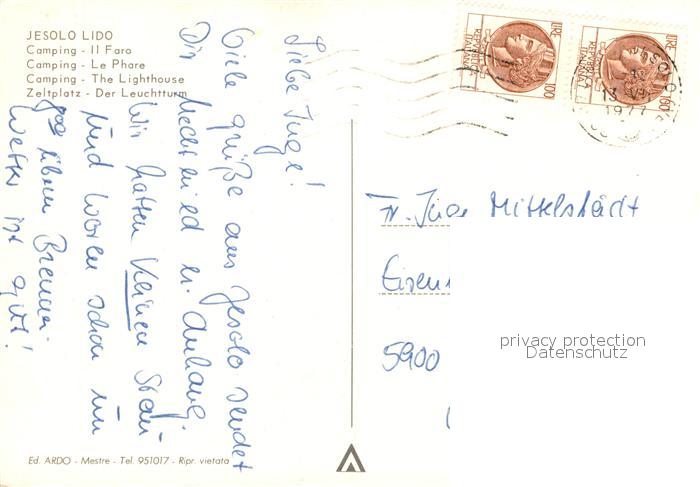 JESOLO LIDO
Camping - Il Faro
Camping - Le Phare
Camping - The Lighthouse
Zeltplatz - Der Leuchtturm
Liebe Inge!
Viele Grüße aus Jesolo sendet
Dir Mechthild u. Anhang.
Wir hatten keinen Stau
und waren schon um
übern Brenner.
Wetter ist gut!
Ed. ARDO - Mestre - Tel. 951017 - Ripr. vietata
LIRE 100
REPUBBLICA ITALIANA
LIRE 100
REPUBBLICA ITALIANA
1977
Fr. Inge Mittelstädt
5900
privacy protection
Datenschutz